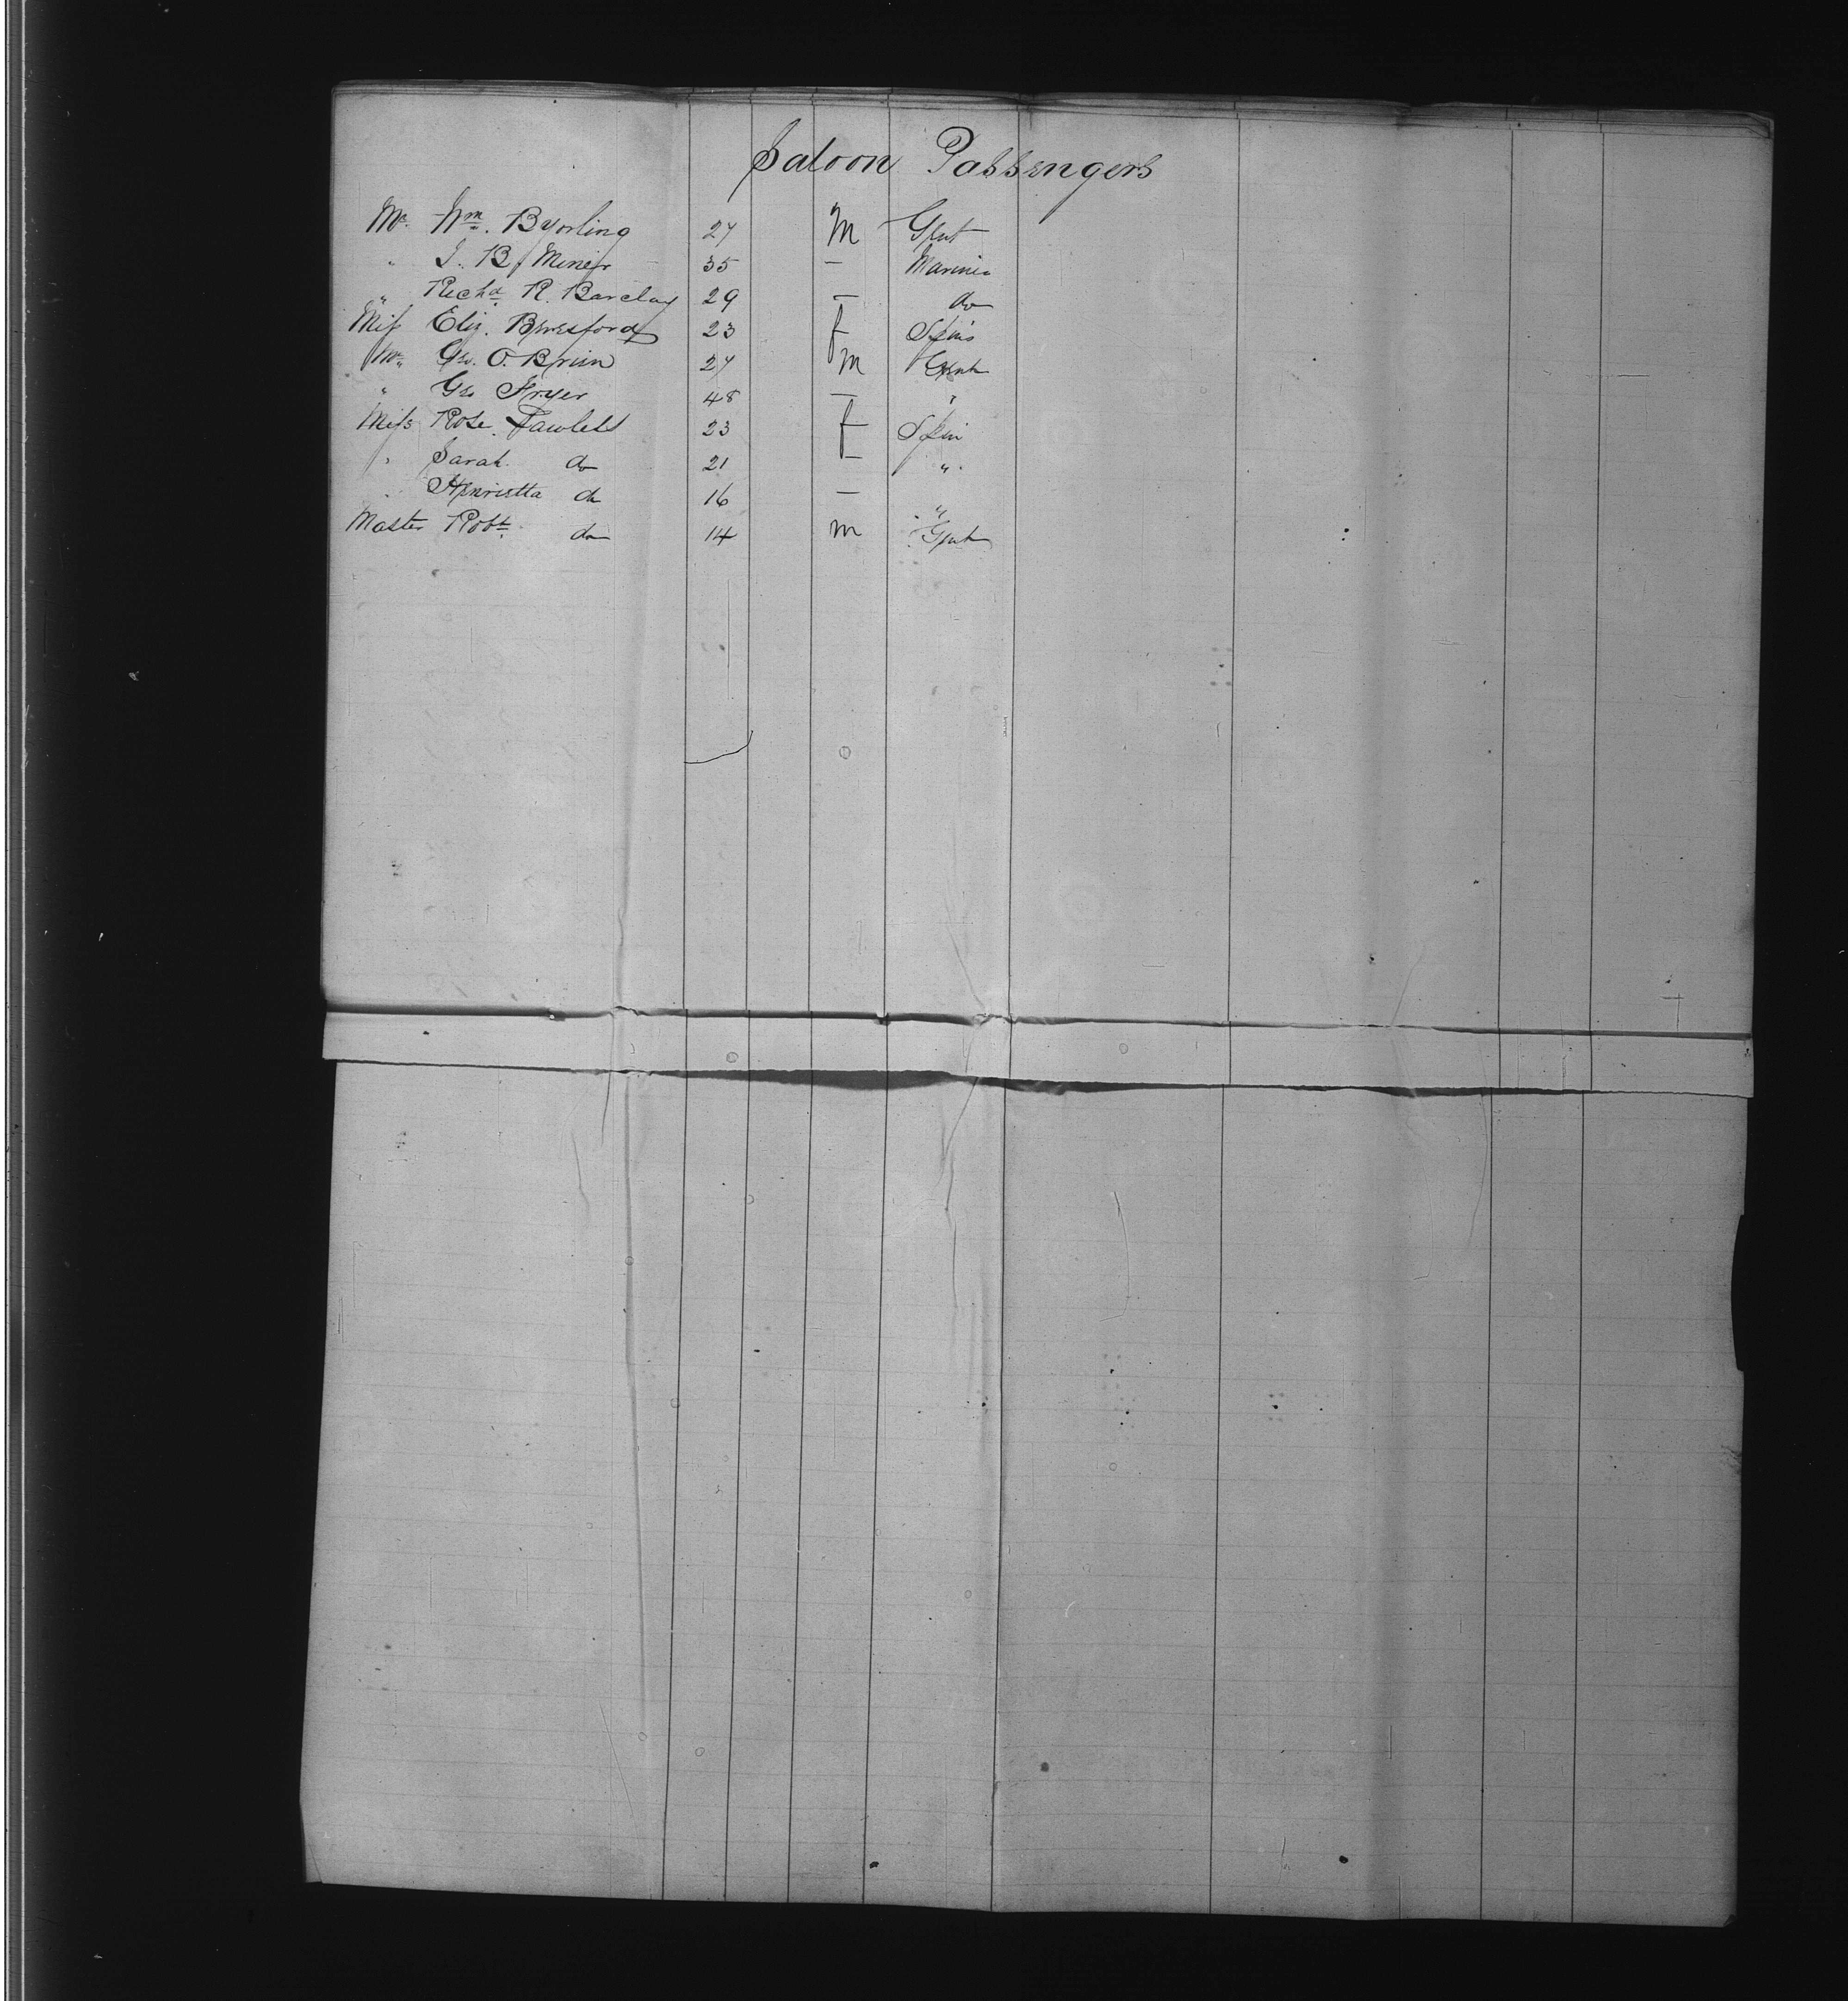 Saloon Passengers
Mr. Wm. Byorling 27 M Gent
" J. B. Miner 35 — Marine
" Richd. R. Barclay 29 — do
Miss Eliz. Beresford 23 F Spins
Mr. Geo. O.Brien 27 M Gent
" Geo Fryer 48 — "
Miss Rose Fawlett 23 F Spin
" Sarah do 21 — "
" Henrietta do 16 — "
Master Robt. do 14 M Gent